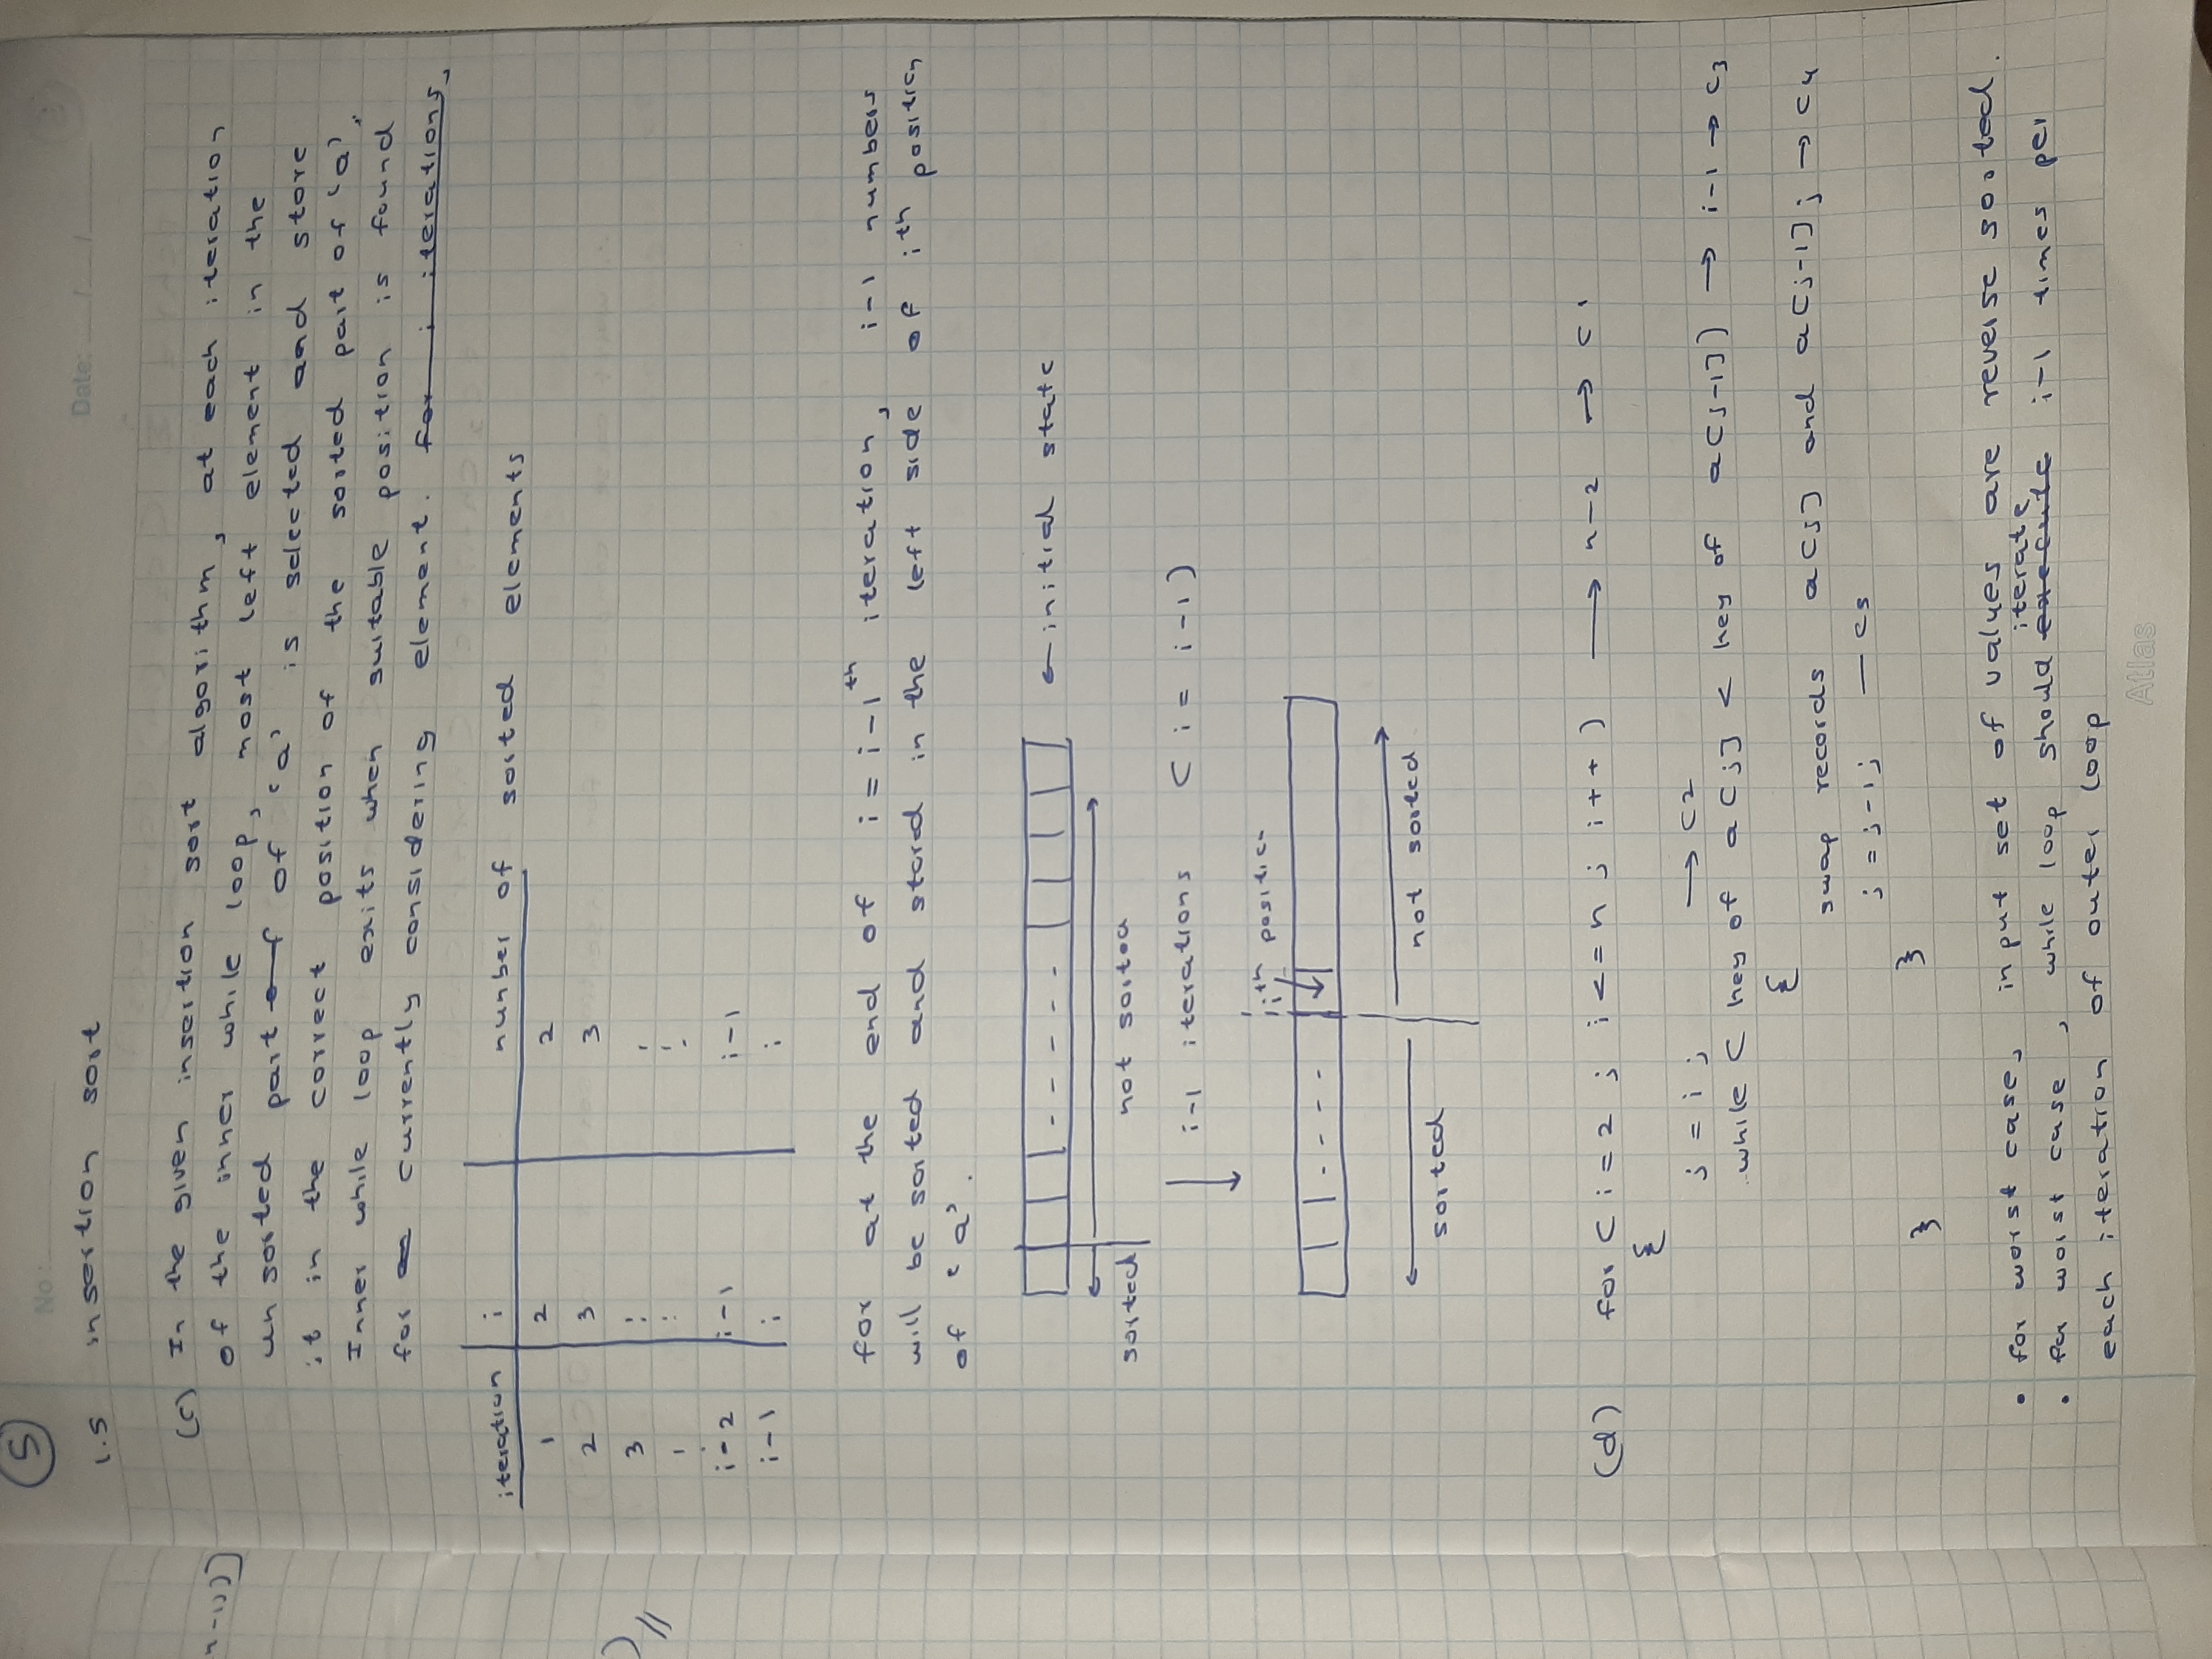 5
No :
Date: / /
1.5 insertion sort
n-1))]
(c) In the given insertion sort algorithm, at each iteration
of the inner while loop, most left element in the
un sorted part of of 'a' is selected and store
it in the correct position of the sorted part of 'a'.
Inner while loop exits when suitable position is found
for currently considering element. for i iterations,
iteration i number of sorted elements
1 2 2
2 3 3
3 : :
: : :
i-2 i-1 i-1
i-1 i i
for at the end of i = i-1th iteration, i-1 numbers
will be sorted and stored in the left side of ith position
of 'a'.
- - - - - ← initial state
sorted not sorted
i-1 iterations ( i = i-1)
ith position
- - - -
sorted not sorted
(d) for ( i = 2 ; i <= n ; i++ ) → n-2 → c1
{
j = i ; → c2
while ( key of a[j] < key of a[j-1]) → i-1 → c3
{
swap records a[j] and a[j-1]; → c4
j = j-1; — c5
} }
• for worst case, input set of values are reverse sorted.
iterate
• for worst case, while loop should execute i-1 times per
each iteration of outer loop
Atlas